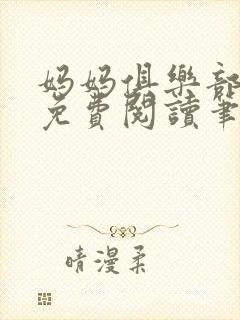 妈妈俱樂部
免費閱讀筆
晴漫柔